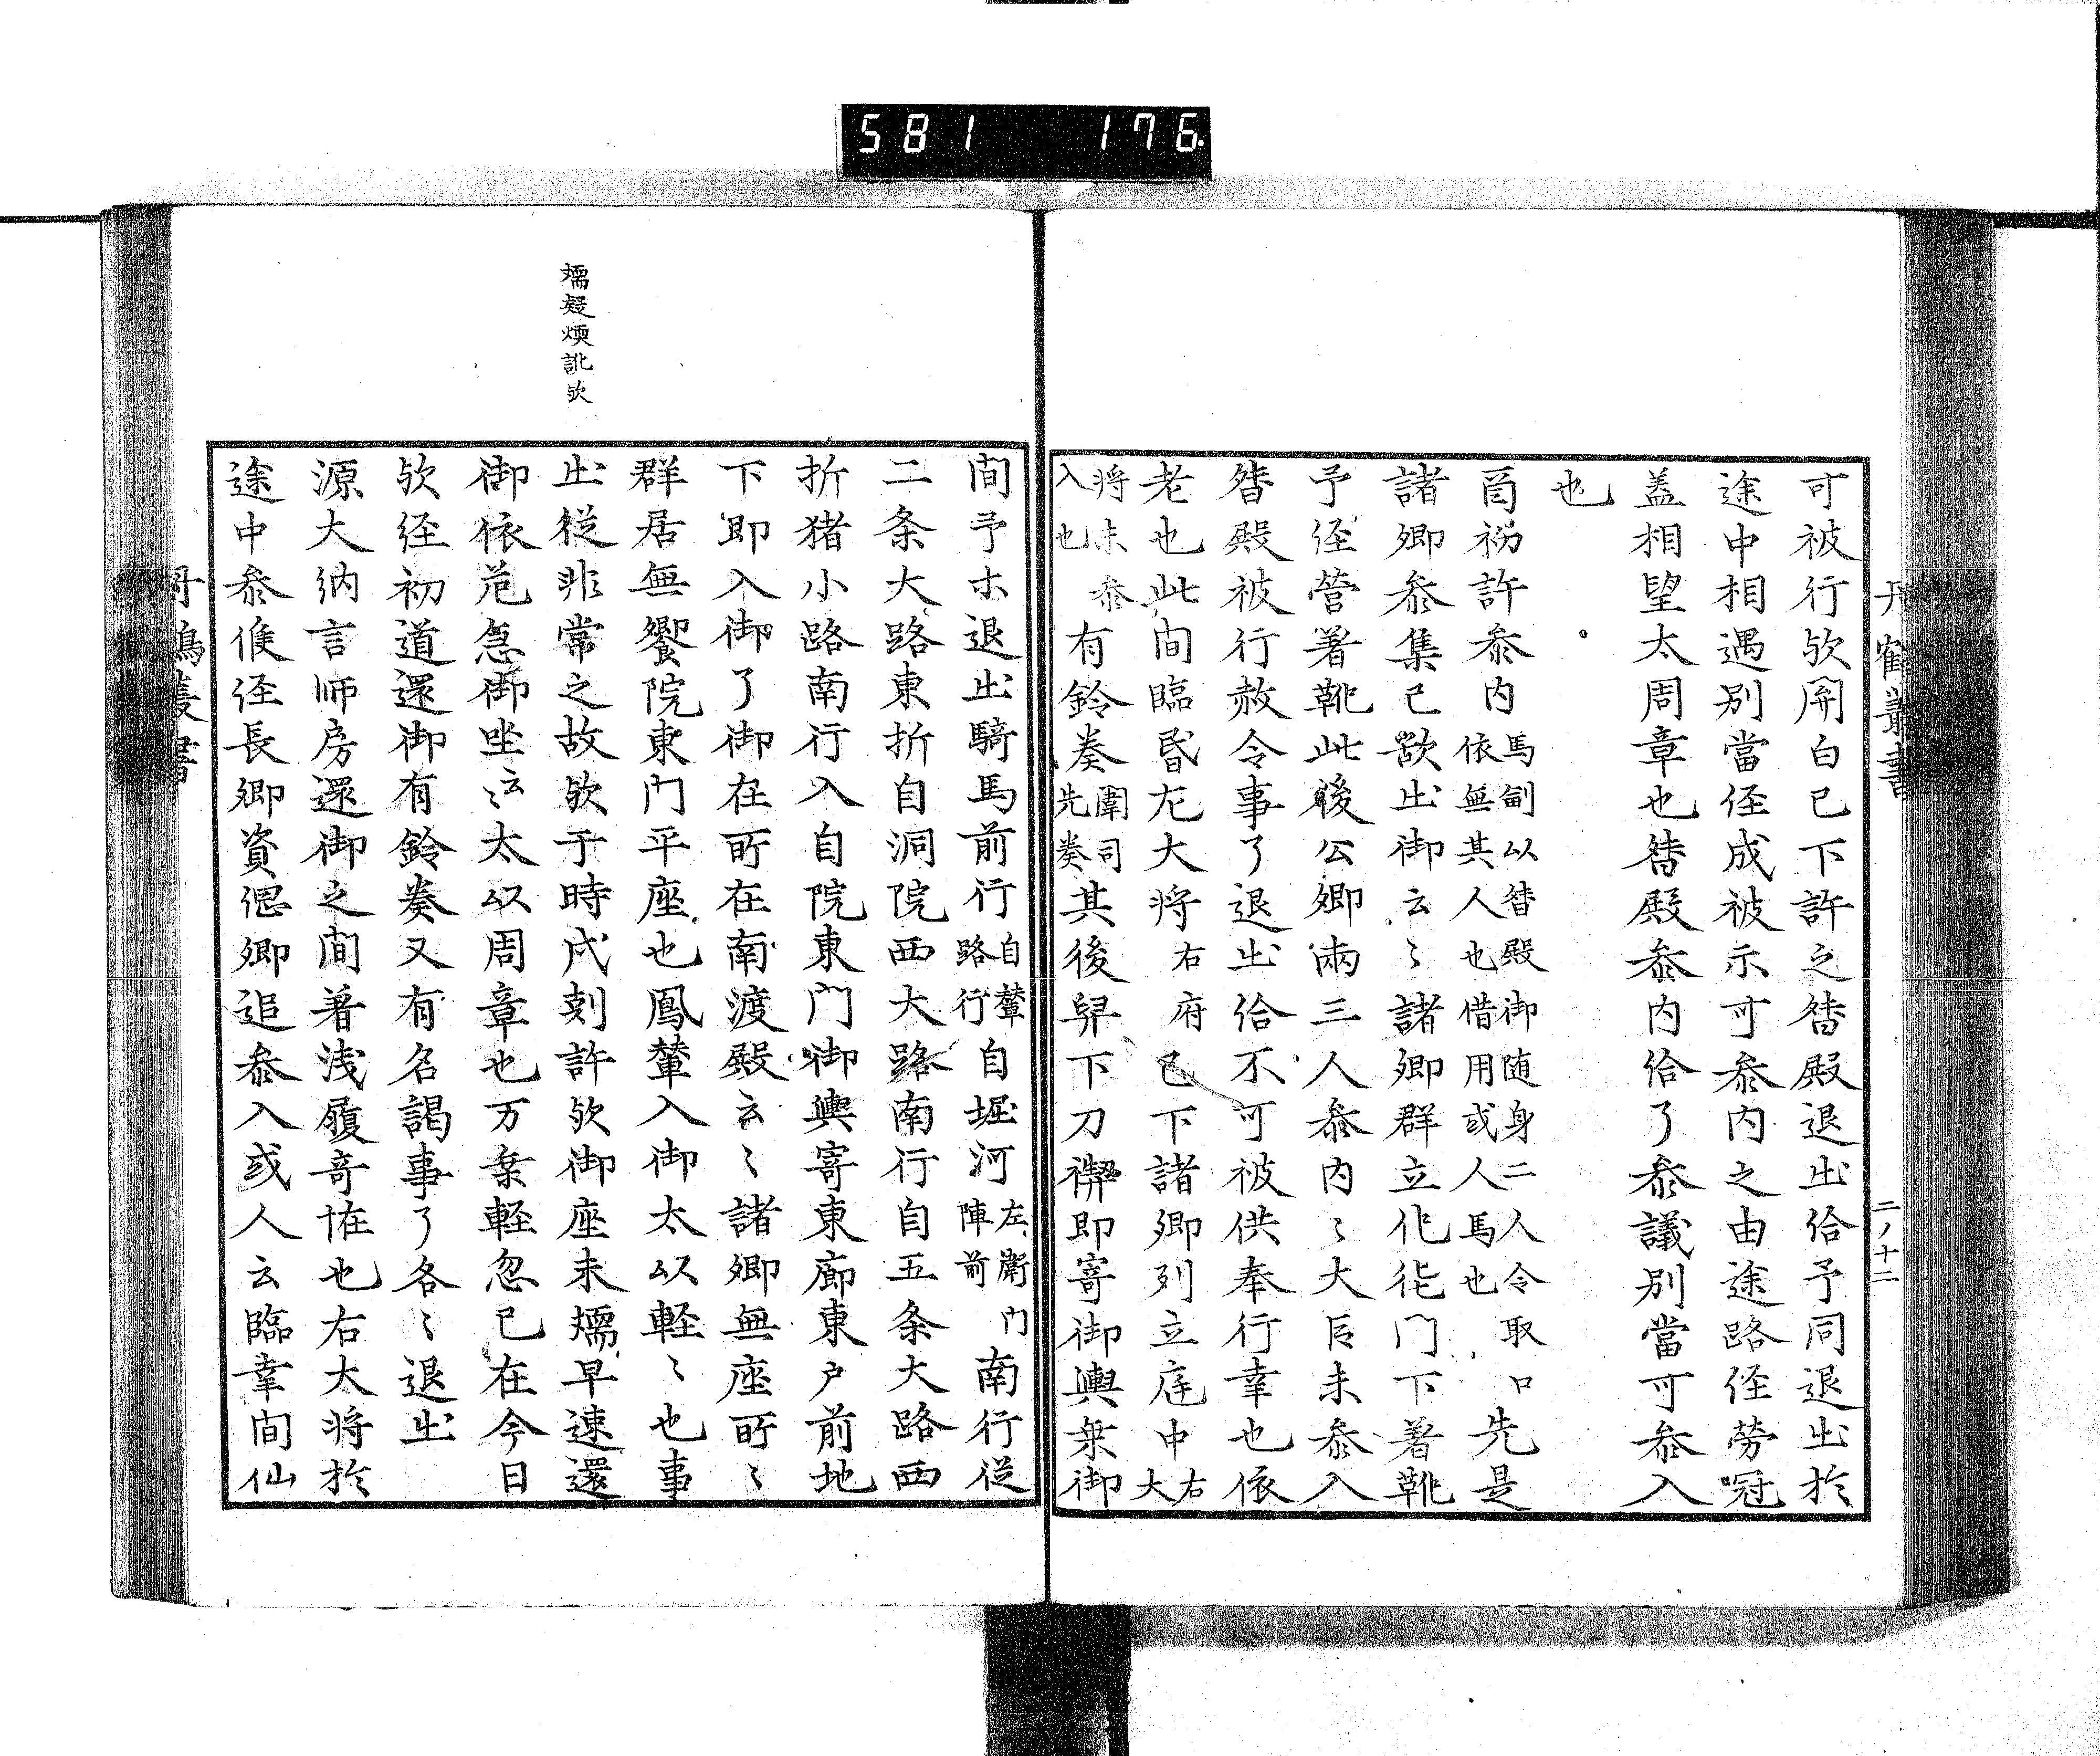 581 176
丹鶴叢書
二ノ十二
可被行欤関白已下許之㬱殿退出伶予同退出於
途中相遇別當侄成被示可参内之由途路侄營冠
盖相望太周章也㬱殿参内伶了参議別當可参入
也
酉初許参内馬副以㬱殿御随身二人令取口
依無其人也借用或人馬也先是
諸卿参集已歓出御云〻諸卿群立化徳門下著靴
予侄營著靴此後公卿両三人参内〻大臣未参入
㬱殿被行赦令事了退出伶不可被供奉行幸也依
老也此間臨昏九大将右府已下諸卿列立庭中右
大
将未参
入也有鈴奏闈司
先奏其後舁下刀禊即寄御輿乗御
間予ホ退出騎馬前行自輦
路行自堀河左衛門
陣前南行従
二条大路東折自洞院西大路南行自五条大路西
折猪小路南行入自院東門御輿寄東廊東戸前地
下即入御了御在所在南渡殿云〻諸卿無座所〻
群居無饗院東門平座也鳳輦入御太以軽〻也事
出従非常之故欤于時戌刻許欤御座未燸早速還
御依危急御坐云〻太以周章也万乗軽忽已在今日
欤侄初道還御有鈴奏又有名謁事了各〻退出
源大納言師房還御之間著浅履奇恠也右大将於
途中参候侄長卿資偲卿追参入或人云臨幸間仙
燸疑煗訛欤